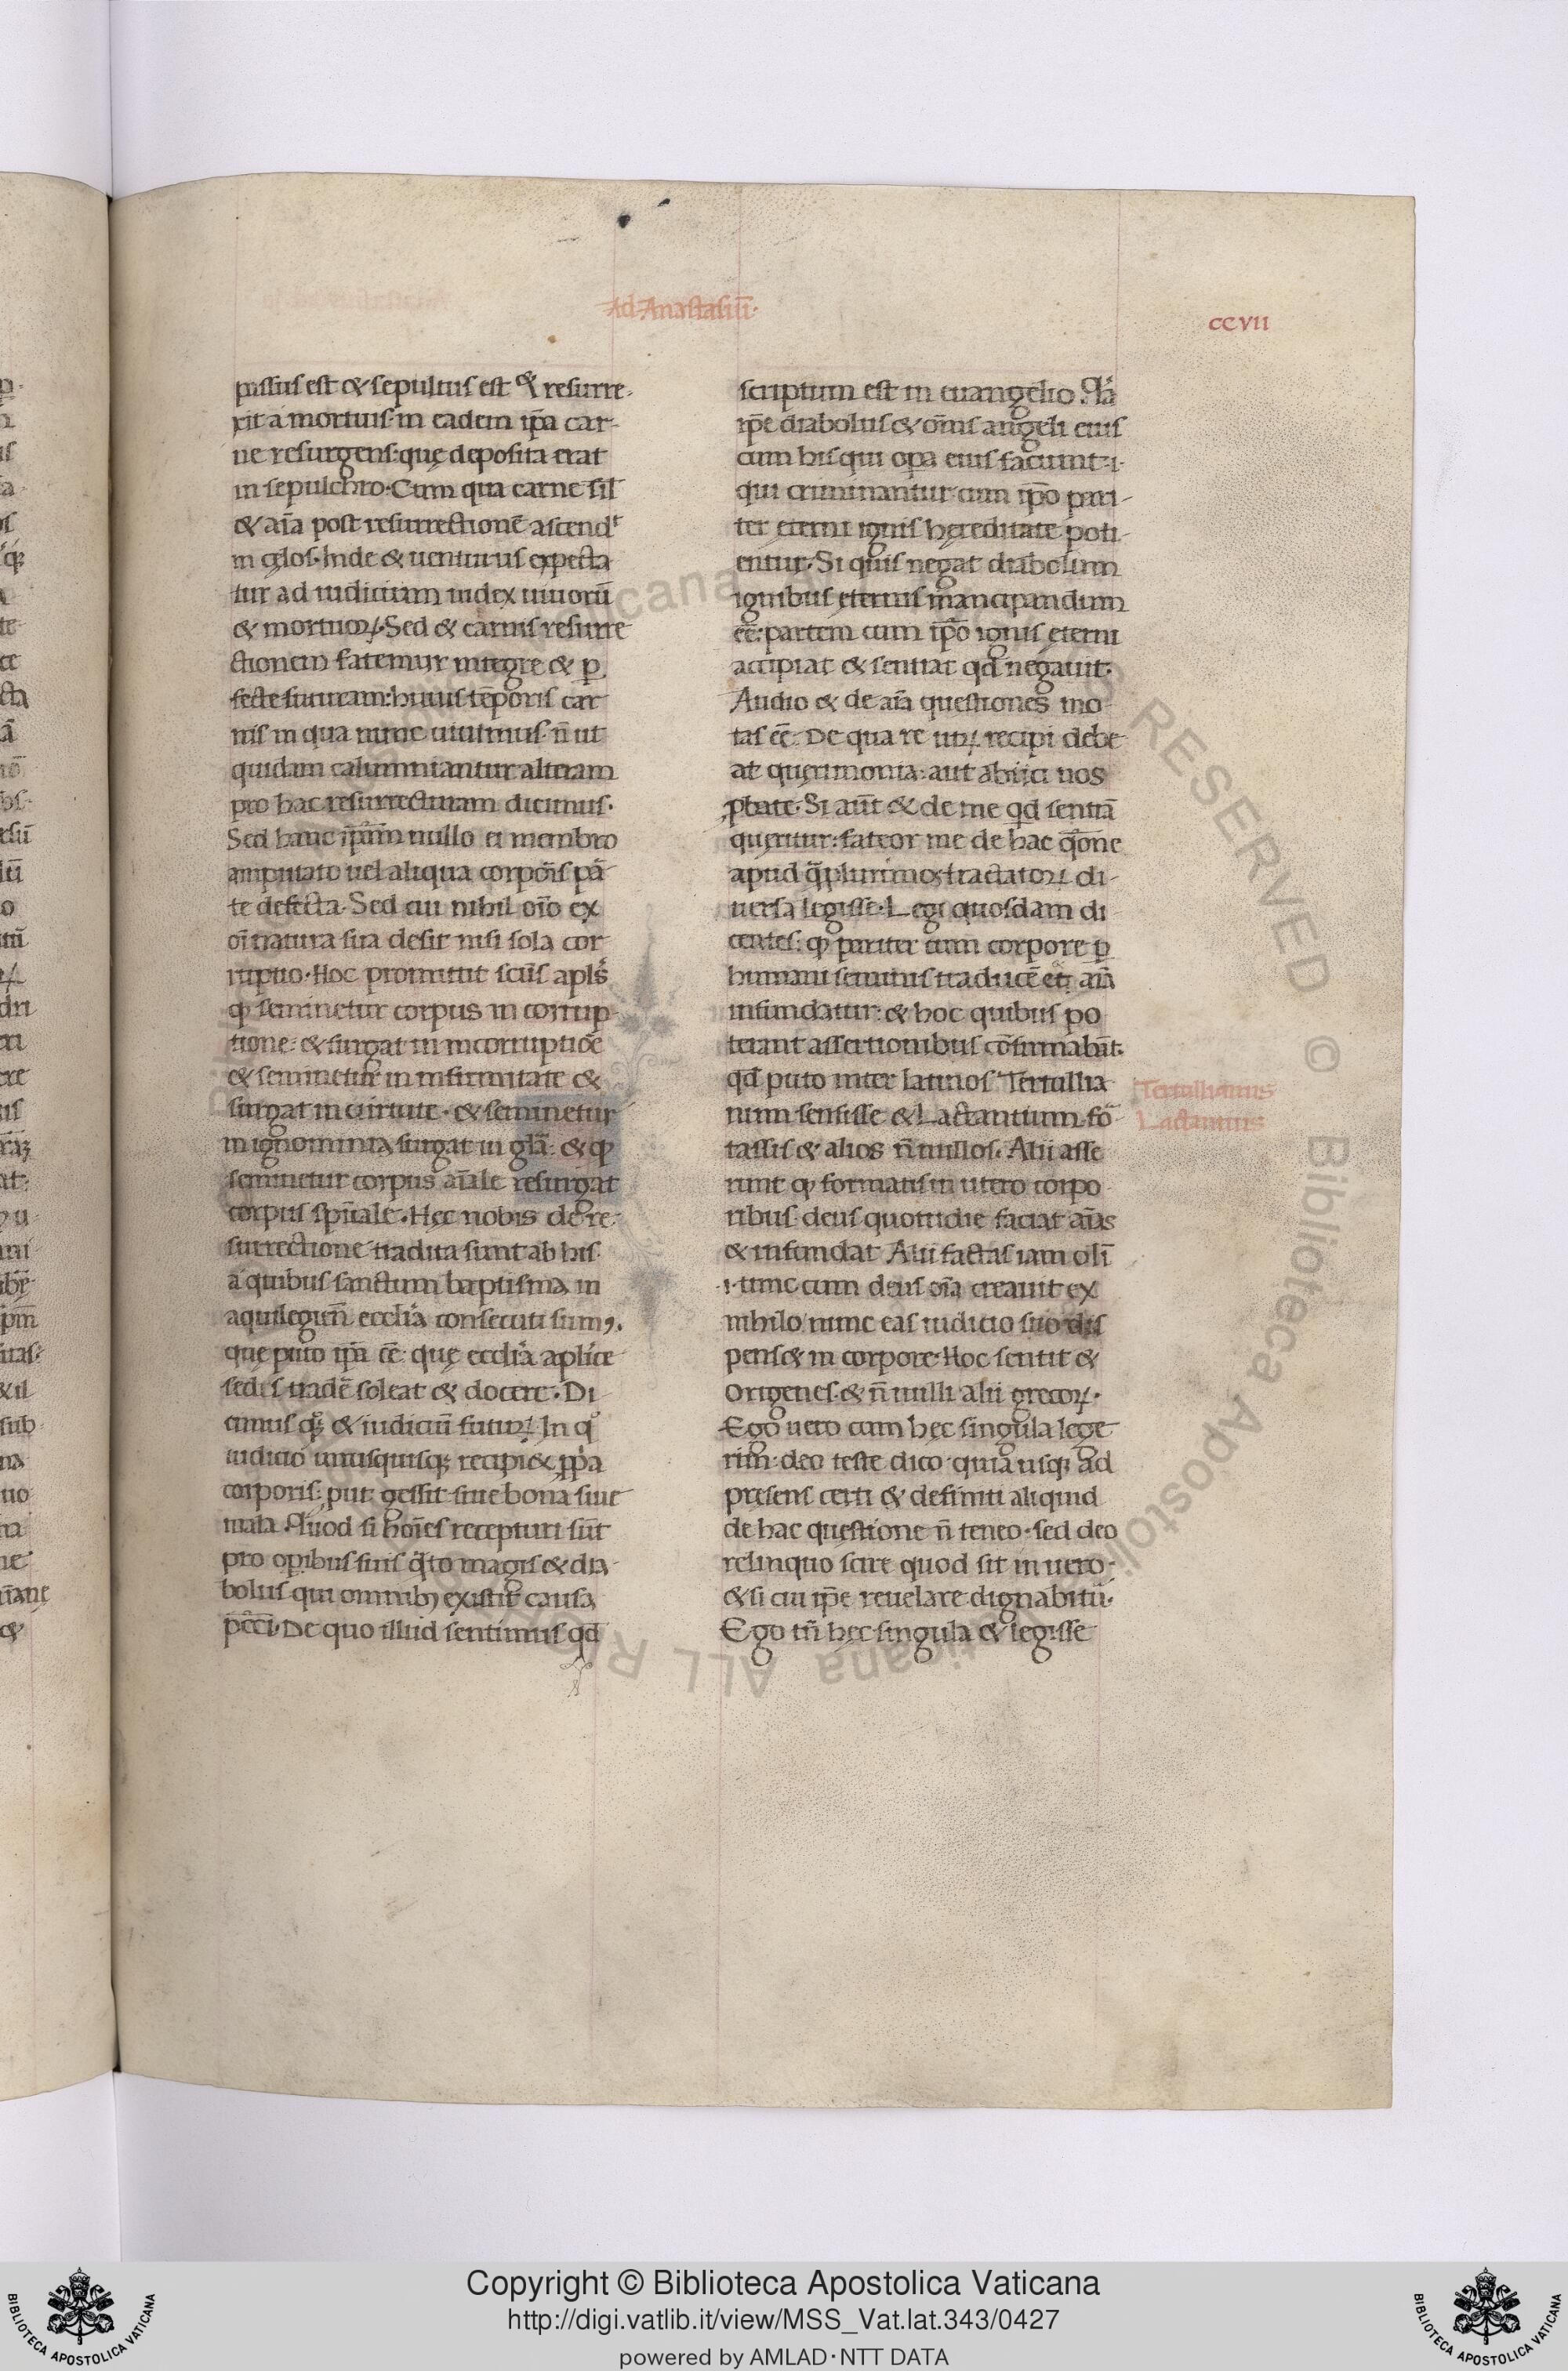 Ad Anastasiū·
ccvii
passus est & sepultus est & resurre-
xit a mortuis in eadem ip̄a car-
ne resurgens: quę deposita erat
in sepulchro. Cum qua carne sil̄
& aīa post resurrectionē ascendͭ
in cęlos. Inde & uenturus expecta
tur ad iudicium iudex uiuorū
& mortuoꝝ. Sed & carnis resurre
ctionem fatemur integre & ꝑ
fecte futuram: huius tēporis car
nis in qua nunc uiuimus. n̄ ut
quidam calumniantur alteram
pro hac resurrecturam dicimus.
Sed hanc ip̄am nullo ei membro
amputato uel aliqua corporis par
te defecta. Sed cui nihil oīo ex
oī natura sua desit nisi sola cor
ruptio. Hoc promittit scūs apl̄s
ꝙ seminetur corpus in corrup-
tione: & surgat in incorruptiōe
& seminetur in infirmitate &
surgat in uirtute. & seminetur
in ignominia surgat in gl̄a. & ꝙ
seminetur corpus aīale resurgat
corpus spūale. Hęc nobis de re-
surrectione tradita sunt ab his
a quibus sanctum baptisma in
aquilegien̄ ecclīa consecuti sumꝰ.
quę puto ip̄a eē: quę ecclīa aplīce
sedis tradē soleat & docere. Di
cimus qͦꝫ & iudiciū futuꝝ. In qͦ
iudicio unusquisqꝫ recipi& ꝓp̄a
corporis: put gessit siue bona siue
mala. Quod si hoīes recepturi sūt
pro oꝑibus suis q̄to magis & dia-
bolus qui omnibꝫ existit causa
pēcī. De quo illud sentimus qd̄
scriptum est in euangelio. Qͣa
ip̄e diabolus & om̄is angeli eius
cum his qui oꝑa eius faciunt ·i·
qui criminantur cum ip̄o pari-
ter eterni ignis hęreditate poti-
entur. Si quis negat diabolum
ignibus ęternis mancipandum
eē: partem cum ip̄o ignis ęterni
accipiat & sentiat qd̄ negauit.
Audio & de aīa questiones mo-
tas eē. De qua re utꝝ recipi debe
at querimonia: aut abiici uos
ꝓbate. Si aūt & de me qd̄ sentiā
queritur: fateor me de hac q̄one
apud q̄plurimos tractatoꝝ di-
uersa legisse. Legi quosdam di
centes: ꝙ pariter cum corpore ꝑ
humani seminis traducē et aīa
infundatur: & hoc quibus po
terant assertionibus cōfirmabāt.
qd̄ puto inter latinos Tertullia
num sensisse & Lactantium. for
tassis & alios n̄nullos. Alii asse
runt ꝙ formatis in utero corpo
ribus deus quottidie faciat aīas
& infundat Alii factas iam olī
·i· tunc cum deus oīa creauit ex
nihilo nunc eas iudicio suo dis
pens& in corpore. Hoc sentit &
origenes. & n̄nulli alii grecoꝝ.
Ego uero cum hec singula lege
rim: deo teste dico quia usqꝫ ad
presens certi & definiti aliquid
de hac questione n̄ teneo. sed deo
relinquo scire quod sit in uero.
& si cui ip̄e reuelare dignabitū.
Ego tn̄ hęc singula & legisse
Tertullianus
Lactantius
Copyright © Biblioteca Apostolica Vaticana
http://digi.vatlib.it/view/MSS_Vat.lat.343/0427
powered by AMLAD·NTT DATA
BIBLIOTECA APOSTOLICA VATICANA
BIBLIOTECA APOSTOLICA VATICANA